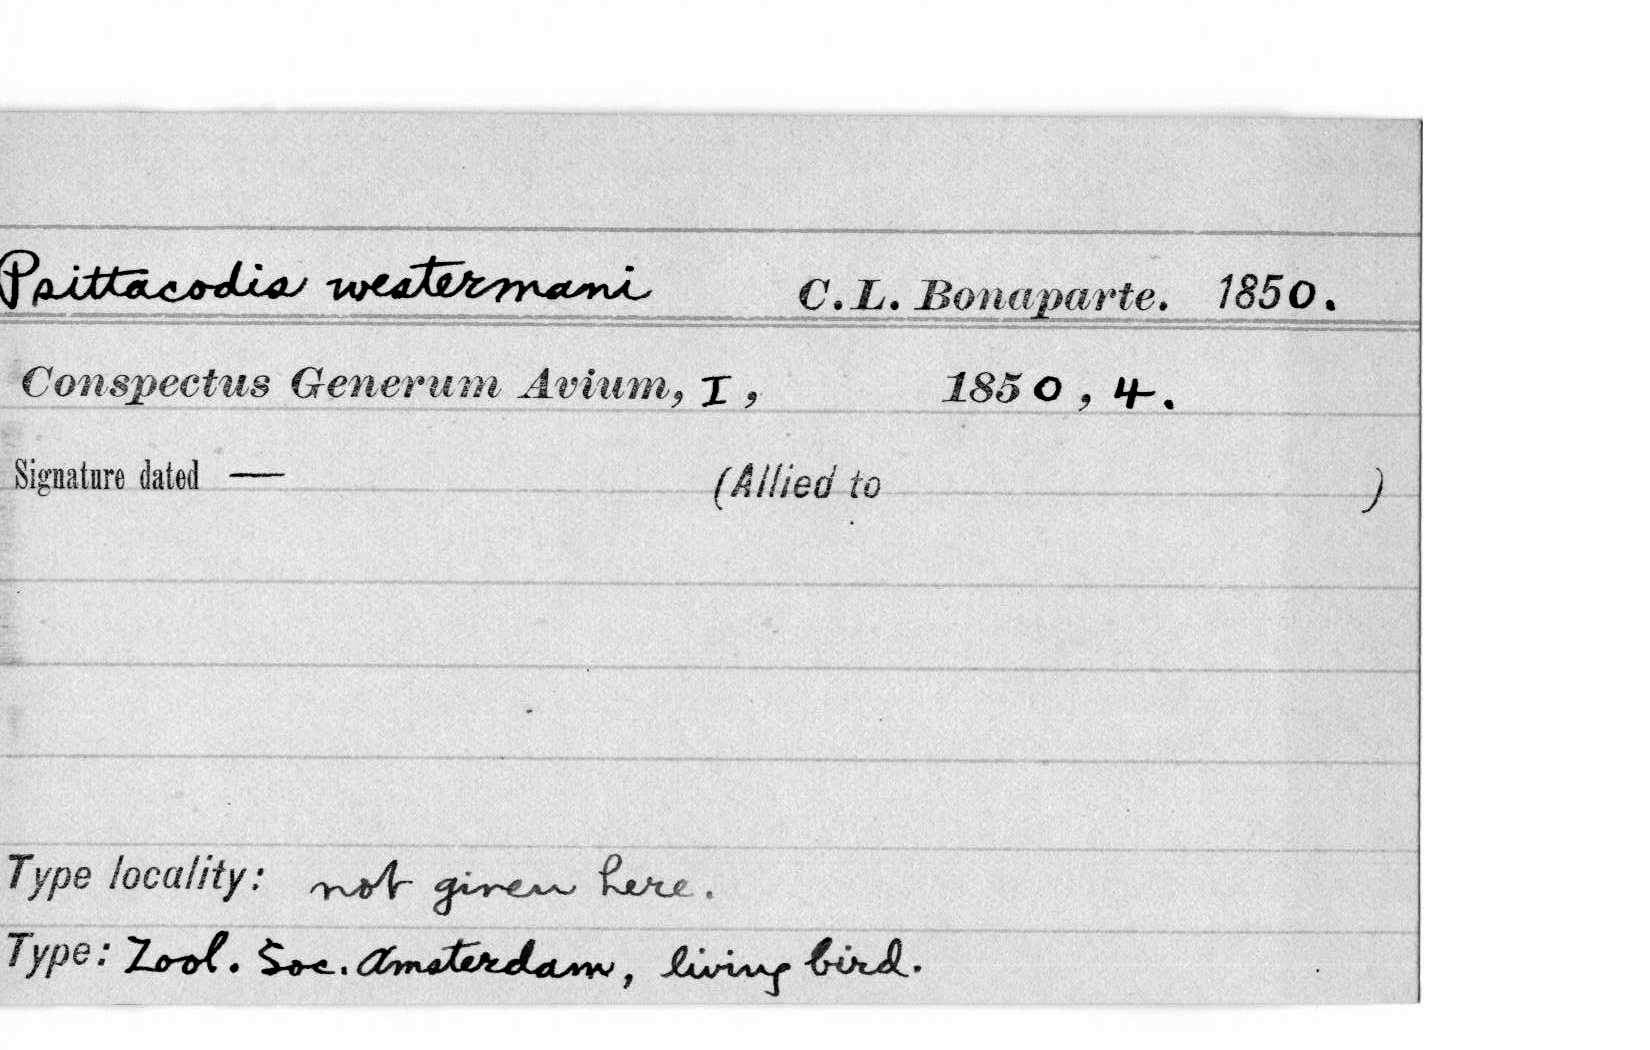 Psittacodis westermani C. L. Bonaparte. 1850.
Conspectus Generum Avium, I, 1850, 4.
Signature dated — (Allied to )
Type locality: not given here.
Type: Zool. Soc. Amsterdam, living bird.